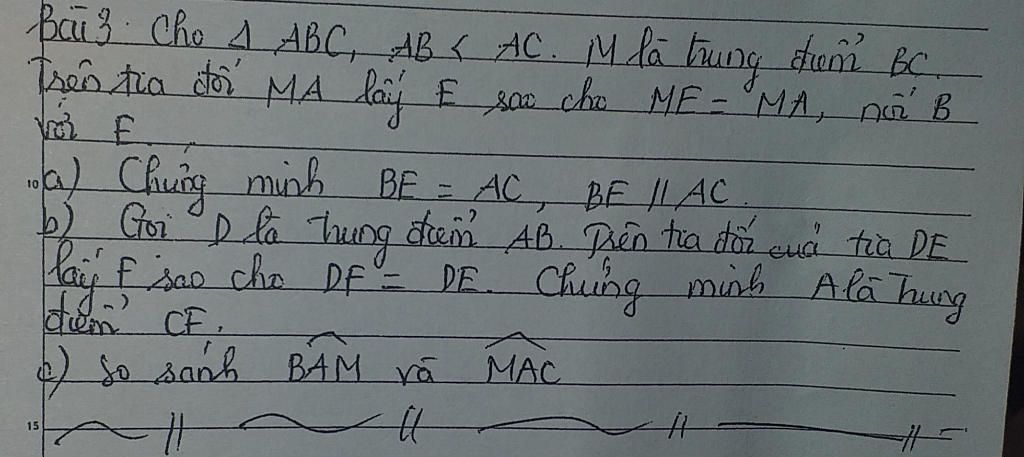 Bài 3. Cho Δ ABC, AB < AC. M là trung điểm BC.
Trên tia đối MA lấy E sao cho ME = MA, nối B
với E.
10 a) Chứng minh BE = AC, BE // AC.
b) Gọi D là trung điểm AB. Trên tia đối của tia DE
lấy F sao cho DF = DE. Chứng minh A là trung
điểm CF.
c) So sánh \widehat{BAM} và \widehat{MAC}
15